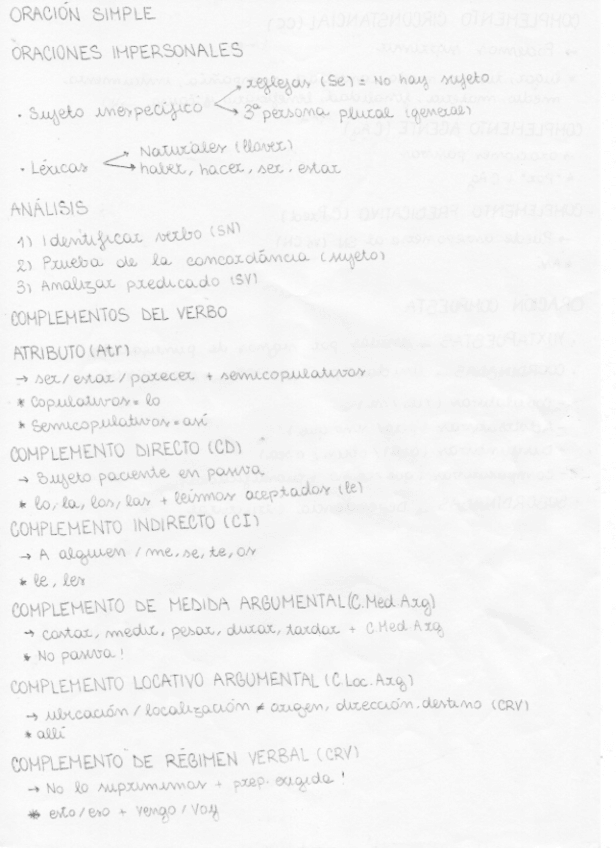 ORACIÓN SIMPLE
ORACIONES IMPERSONALES
· Sujeto inespecífico → reflejas (Se) = No hay sujeto
→ 3ª persona plural (general)
· Léxicas → Naturales (llover)
→ haber, hacer, ser, estar
ANÁLISIS
1) Identificar verbo (SN)
2) Prueba de la concordáncia (sujeto)
3) Analizar predicado (SV)
COMPLEMENTOS DEL VERBO
ATRIBUTO (Atr)
→ ser/estar/parecer + semicopulativos
* Copulativos = lo
* Semicopulativos = así
COMPLEMENTO DIRECTO (CD)
→ Sujeto paciente en pasiva
* lo, la, los, las + leísmos aceptados (le)
COMPLEMENTO INDIRECTO (CI)
→ A alguien / me, se, te, os
* le, les
COMPLEMENTO DE MEDIDA ARGUMENTAL (C.Med.Arg)
→ costar, medir, pesar, durar, tardar + C.Med Arg
* No pasiva!
COMPLEMENTO LOCATIVO ARGUMENTAL (C.Loc.Arg)
→ ubicación / localización ≠ origen, dirección, destino (CRV)
* allí
COMPLEMENTO DE RÉGIMEN VERBAL (CRV)
→ No lo suprimimos + prep. exigida!
* esto/eso + vengo/voy